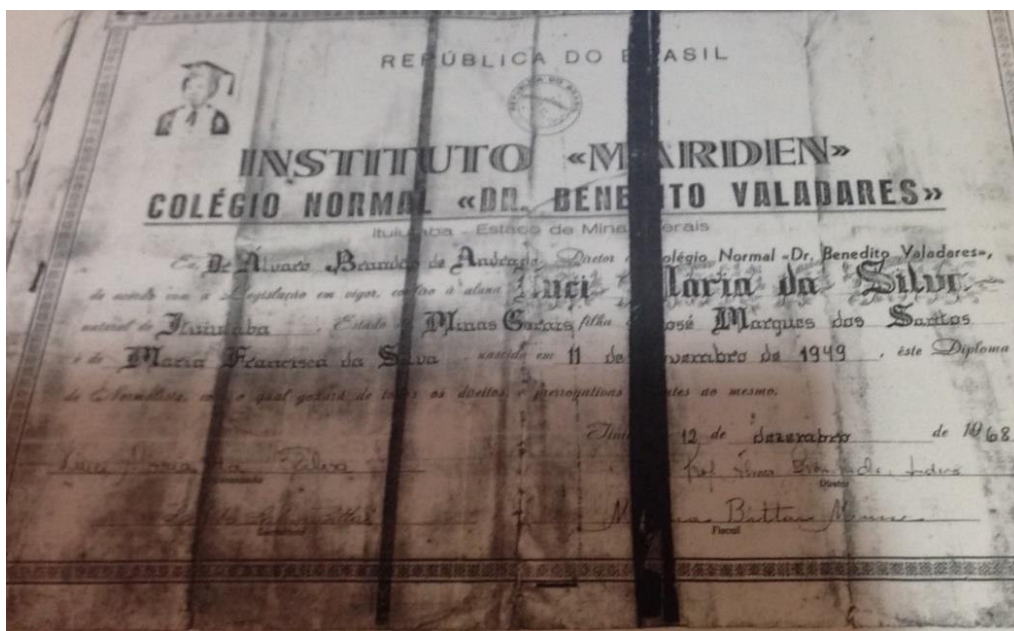 REPÚBLICA DO B ASIL
INSTITUTO «M ARDEN»
COLÉGIO NORMAL «DR. BENEDITO VALADARES»
Ituiutaba - Estado de Minas Gerais
Eu, Dr Álvaro Brandão de Andrade, Diretor olégio Normal «Dr. Benedito Valadares»,
de acordo com a Legislação em vigor, confiro à aluna uci Maria da Silva
natural de Ituiutaba, Estado de Minas Gerais filha José Marques dos Santos
e de Maria Francisca da Silva nascida em 11 de novembro de 1949, êste Diploma
de Normalista, com o qual gozará de todos os direitos e prerrogativas entes ao mesmo.
12 de dezembro de 1968
Maria da Silva
Diretor
Bittar
Fiscal